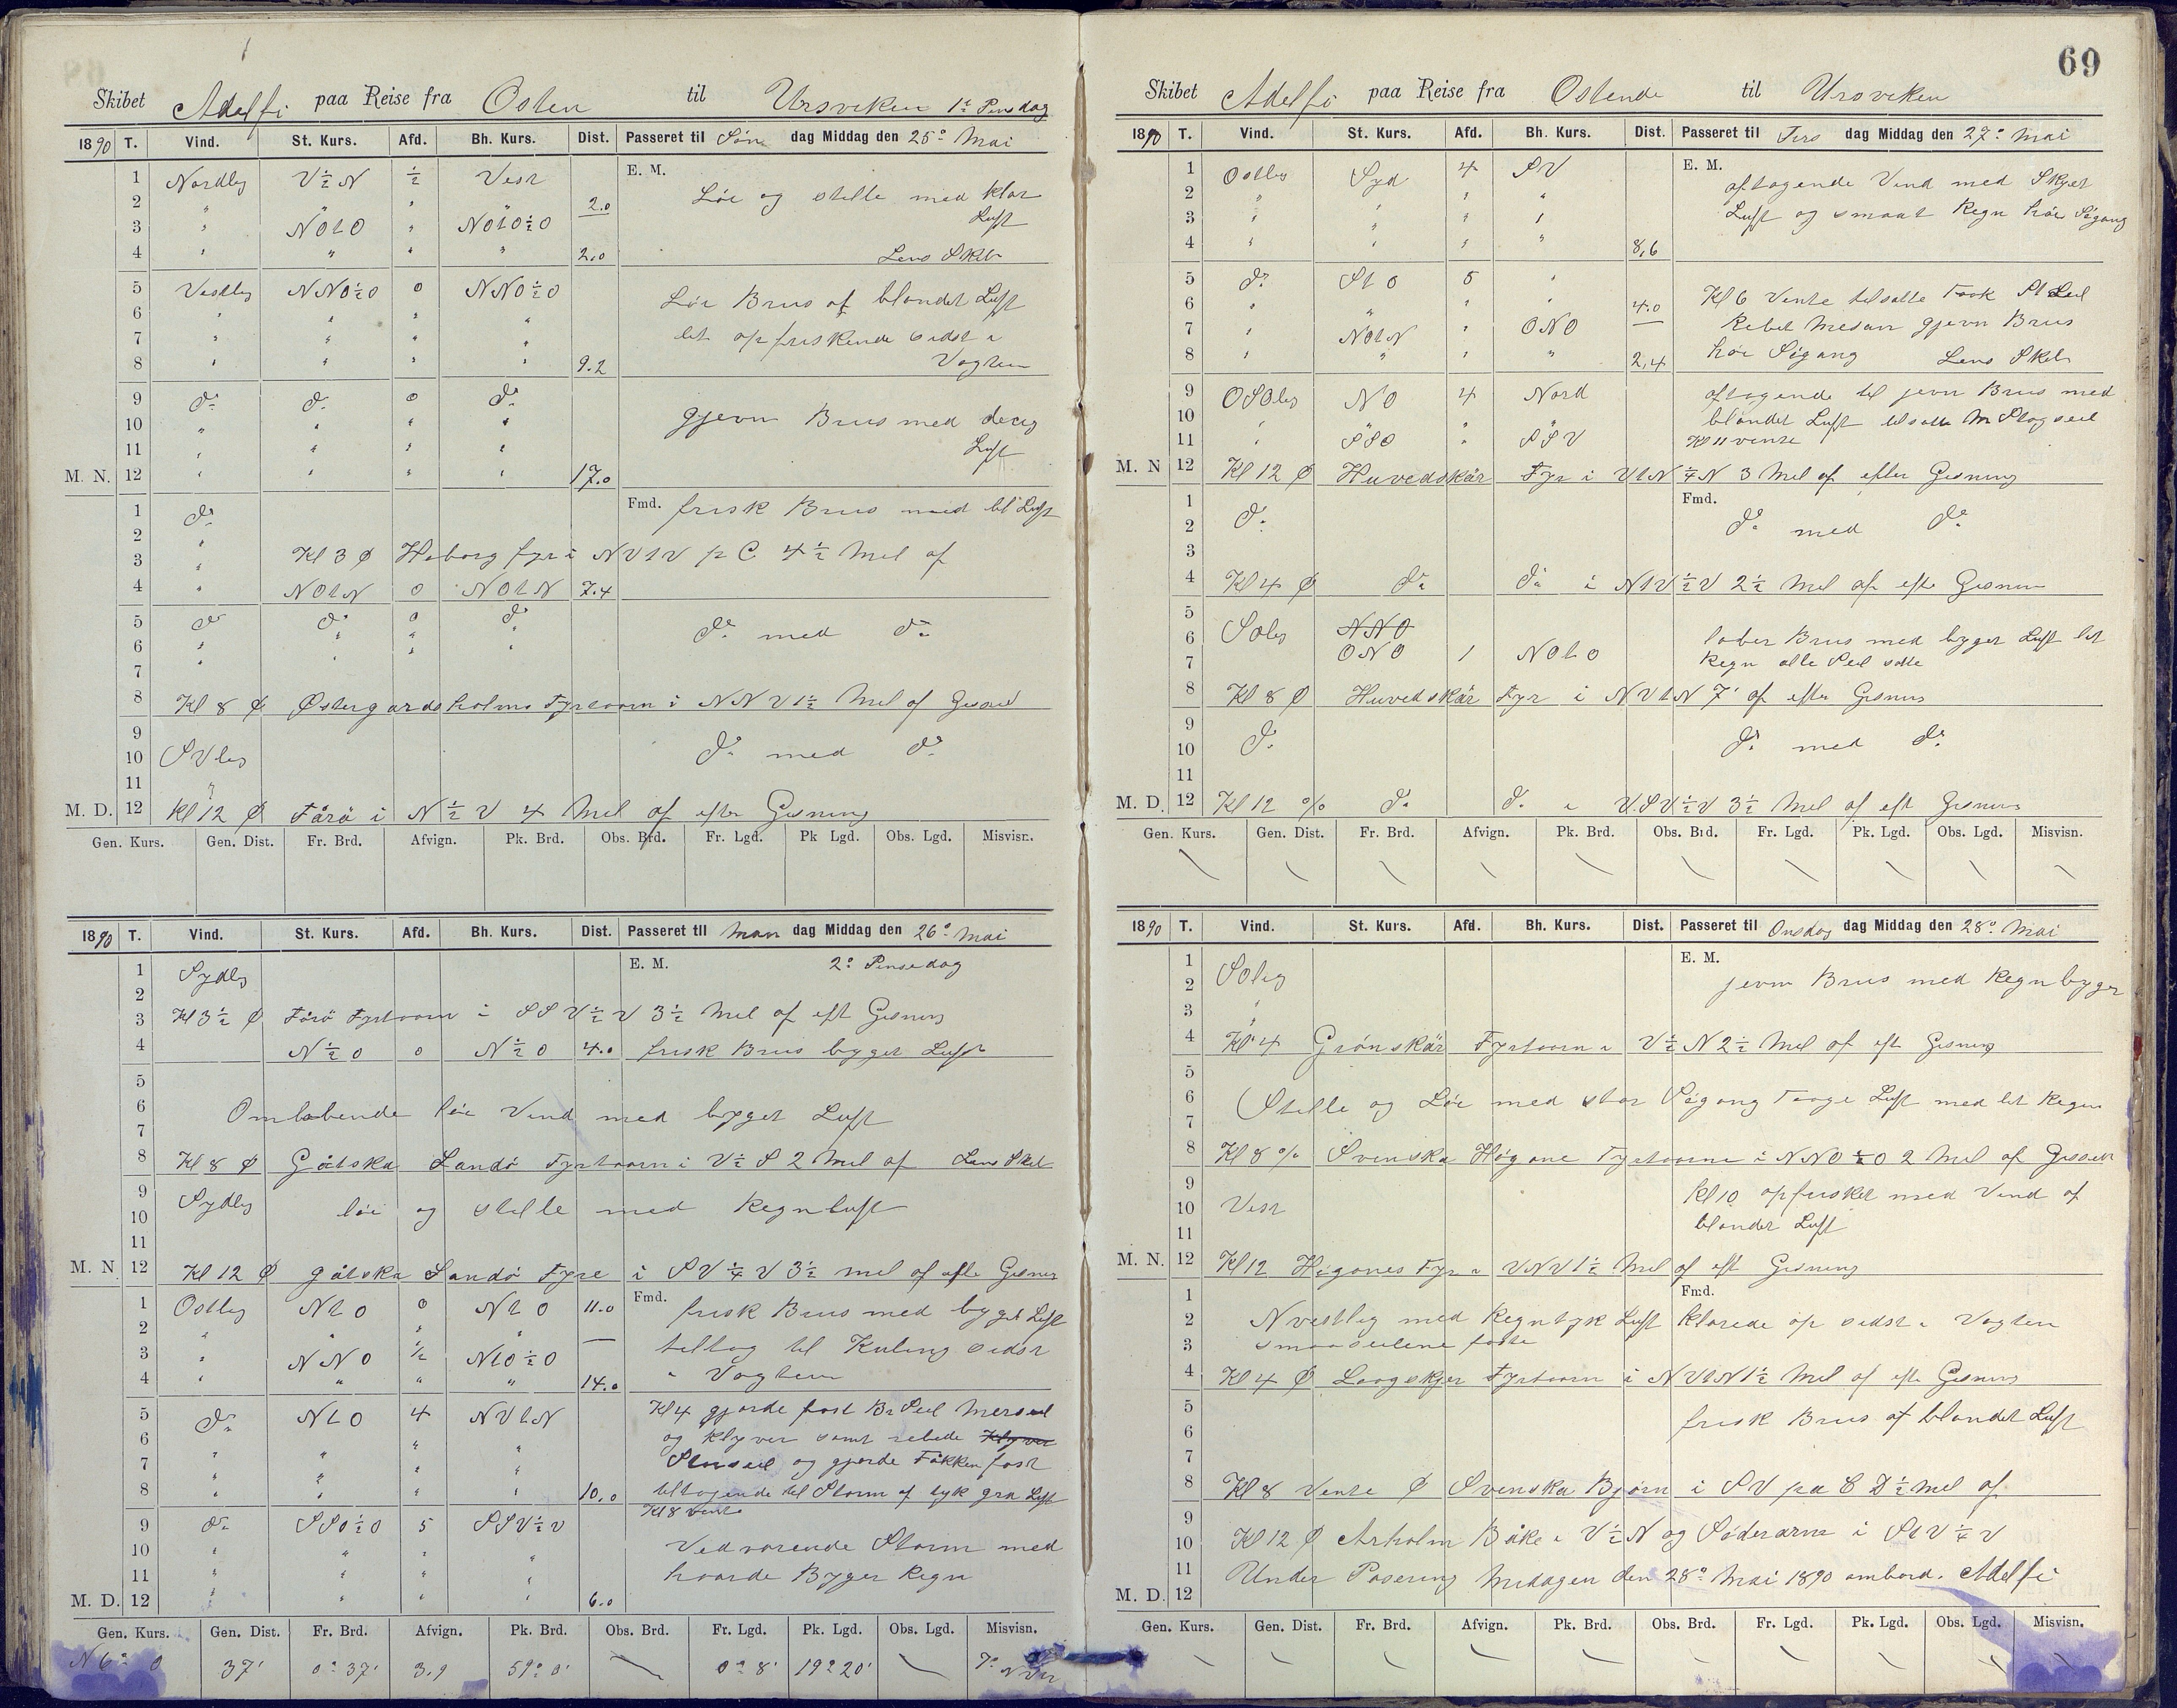 Skibet Adelfi paa Reise fra Osten til Ursviken 1ᵉ Pinsdag
1890 T. Vind. St. Kurs. Afd. Bh. Kurs. Dist. Passeret til Søn dag Middag den 25º Mai
1 Nordlig V½N ½ Vest E. M.
2 " " " " 2.0 Løi og stille med klar
3 " NOtO " NOtO½O Luft
4 " " " " 2.0 Lens Skib
5 Vestlig NNO½O 0 NNO½O Løi Bris af blandet Luft
6 " " " "
7 " " " " let opfriskende sidst i
8 " " " " 9.2 Vagten
9 dº dº 0 dº
10 " " " " gjevn Bris med
11 " " " " Luft
M. N. 12 " " " " 17.0
1 dº Fmd. frisk Bris med bl Luft
2 "
3 " Kl 3 Ø Hoborg fyr i NVtV p C 4½ Mil af
4 " NOtN 0 NOtN 7.4
5 dº dº 0 dº
6 " " " " dº med dº
7
8 Kl 8 Ø Østergardsholms Fyrtaarn i NNV 1½ Mil af
9
10 SVlig dº med dº
11 "
M. D. 12 Kl 12 Ø Fårö i N½V 4 Mil af efter Gisning
Gen. Kurs. Gen. Dist. Fr. Brd. Afvign. Pk. Brd. Obs. Brd. Fr. Lgd. Pk Lgd. Obs. Lgd. Misvisn.
1890 T. Vind. St. Kurs. Afd. Bh. Kurs. Dist. Passeret til Man dag Middag den 26º Mai
1 Sydlig E. M. 2º Pinsedag
2
3 Kl 3½ Ø Fårö Fyrtaarn i SSV½V 3½ Mil af eft Gisning
4 N½O 0 N½O 4.0 frisk Bris byget Luft
5
6 Omløbende løi Vind med byget Luft
7
8 Kl 8 Ø Gåtska Sandö Fyrtaarn i V½S 2 Mil af Lens Skib
9 Sydlig løi og stille med Regnluft
10
11
M. N 12 Kl 12 Ø Gåtska Sandö Fyre i SV¼V 3½ mil af efte Gisning
1 Ostlig NtO 0 NtO 11.0 Fmd. frisk Bris med byget Luft
2 " " " "
3 " NNO ½ NtO½O tiltog til Kuling sidst
4 " " " " 14.0 i Vagten
5 dº NtO 4 NVtN Kl 4 gjorde fast Br Seil Merseil
6 " " " " og Klyver samt rebede Klyver
7 " " " " Stenseil og gjorde Fåkken fast
8 " " " " 10.0 tiltagende til Storm af tyk graa Luft
Kl 8 vente
9 dº SSO½O 5 SSV½V
10 " " " " Vedvarende Storm med
11 " " " " haarde Byger Regn
M. D. 12 " " " " 6.0
Gen. Kurs. Gen. Dist. Fr. Brd. Afvign. Pk. Brd. Obs. Brd. Fr. Lgd. Pk. Lgd. Obs. Lgd. Misvisn.
N 6º O 37' 0º 37' 3.9 59º 0' 0º 8' 19º 20' 7º NVlig
69
Skibet Adelfi paa Reise fra Ostende til Ursviken
1890 T. Vind. St. Kurs. Afd. Bh. Kurs. Dist. Passeret til Tirs dag Middag den 27º Mai
1 Ostlig Syd 4 SV E. M.
2 " " " " aftagende Vind med Skyet
3 " " " " Luft og smaat Regn høi Søgang
4 " " " " 8,6
5 dº StO 5 "
6 " " " " 4.0 Kl 6 vente tilsatte Fook St Seil
7 " NOtN " ONO Rebet Mesan gjevn Bris
8 " " " " 2,4 høi Søgang Lens Skib
9 OSOlig NO 4 Nord aftagende til jevn Bris med
10 " " " " blandet Luft tilsatte M Stagseil
11 " SSO " SSV Kl 11 vente
M. N 12 Kl 12 Ø Huvudskär Fyr i VtN¼N 3 Mil af efter Gisning
1 dº Fmd.
2 dº med dº
3
4 Kl 4 Ø dº dº i NtV½V 2½ Mil af efte Gisning
5
6 SOlig NNO
ONO 1 NOtO laber Bris med byget Luft let
7 Regn alle Seil satte
8 Kl 8 Ø Huvudskär Fyr i NVtN 7' af efter Gisning
9
10 dº dº med dº
11
M. D. 12 Kl 12 % dº dº i V.SV½V 3½ Mil af eft Gisning
Gen. Kurs. Gen. Dist. Fr. Brd. Afvign. Pk. Brd. Obs. Brd. Fr. Lgd. Pk. Lgd. Obs. Lgd. Misvisn.
1890 T. Vind. St. Kurs. Afd. Bh. Kurs. Dist. Passeret til Onsdag dag Middag den 28º Mai
1 SOlig E. M.
2 jevn Bris med Regnbyger
3 "
4 Kl 4 Grönskär Fyrtaarn i V½N 2½ Mil af eft Gisning
5
6 Stille og Løi med stor Søgang Taage Luft med let Regn
7
8 Kl 8 % Svenska Högane Fyrtaarne i NNO½O 2 Mil af
9 Kl 10 opfrisket med Vind af
10 Vest blandet Luft
11
M. N. 12 Kl 12 Högones Fyr i VNV 1½ Mil af eft Gisning
1 Fmd.
2 Nvestlig med Regntyk Luft klarede op sidst i Vagten
3 smaaseilene faste
4 Kl 4 Ø Laagskjer Fyrtaarn i NVtN 1½ Mil af efte Gisning
5 frisk Bris af blandet Luft
6
7
8 Kl 8 vente Ø Svenska Bjørn i SV pa C D½ mil af
9
10 Kl 12 Ø Arholm Båke i V½N og Söderarm i StV¼V
11 Under Pasering Midagen den 28º Mai 1890 ombord. Adelfi
M. D. 12
Gen. Kurs. Gen. Dist. Fr. Brd. Afvign. Pk. Brd. Obs. Brd. Fr. Lgd. Pk. Lgd. Obs. Lgd. Misvisn.